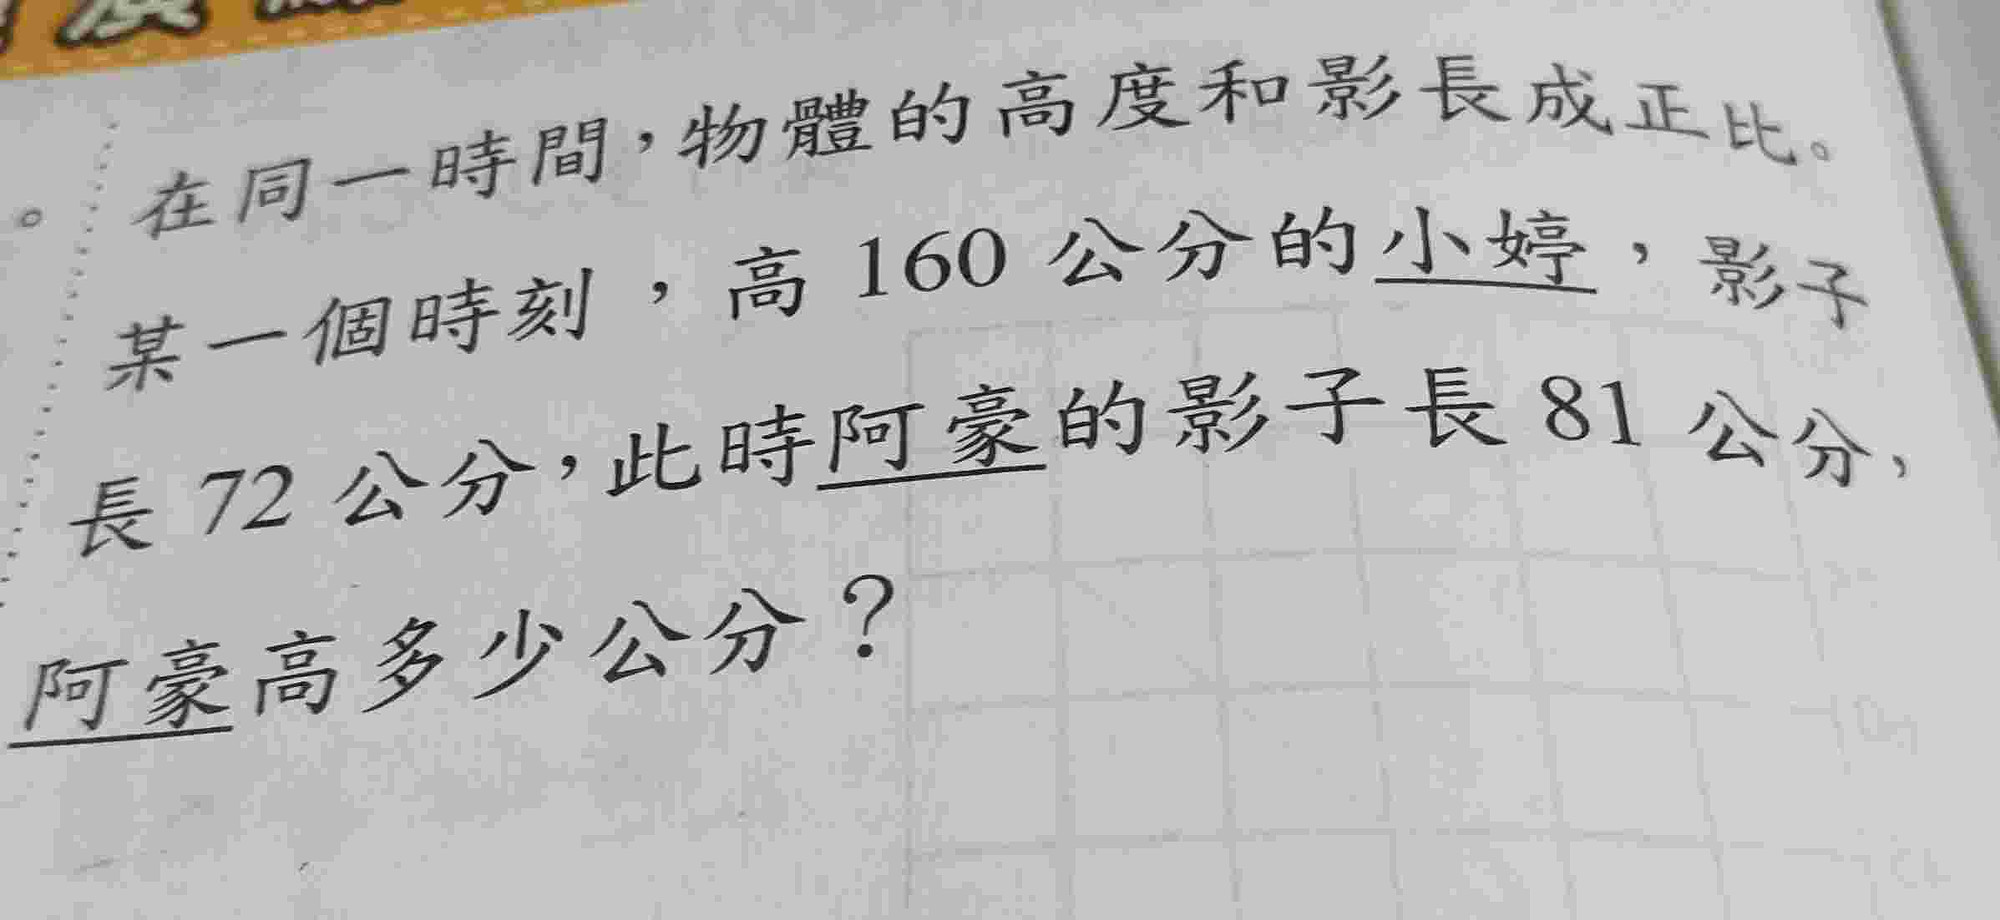 在同一時間，物體的高度和影長成正比。
某一個時刻，高 160 公分的小婷，影子
長 72 公分，此時阿豪的影子長 81 公分，
阿豪高多少公分？